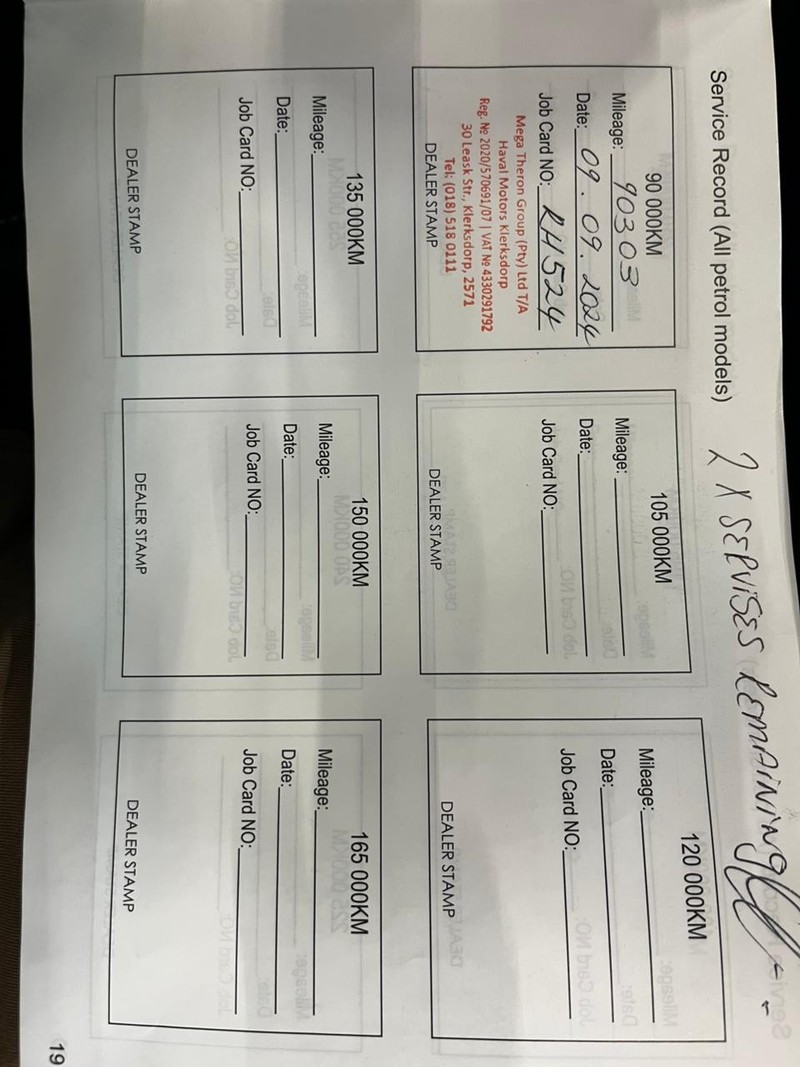 Service Record (All petrol models)
2 X SERVISES REMAINING
90 000KM
Mileage: 90303
Date: 09.09.2024
Job Card NO: RH524
Mega Theron Group (Pty) Ltd T/A
Haval Motors Klerksdorp
Reg. № 2020/570691/07 | VAT № 4330291792
30 Leask Str., Klerksdorp, 2571
Tel: (018) 518 0111
DEALER STAMP
105 000KM
Mileage:
Date:
Job Card NO:
DEALER STAMP
120 000KM
Mileage:
Date:
Job Card NO:
DEALER STAMP
135 000KM
Mileage:
Date:
Job Card NO:
DEALER STAMP
150 000KM
Mileage:
Date:
Job Card NO:
DEALER STAMP
165 000KM
Mileage:
Date:
Job Card NO:
DEALER STAMP
19